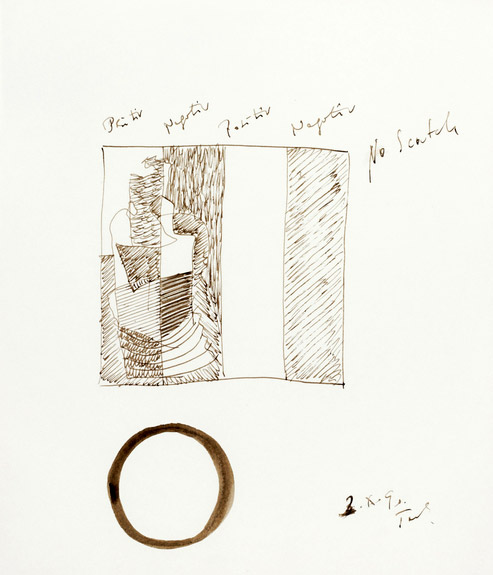 Positiv Negativ Positiv Negativ
No Scratch
2.X.90.